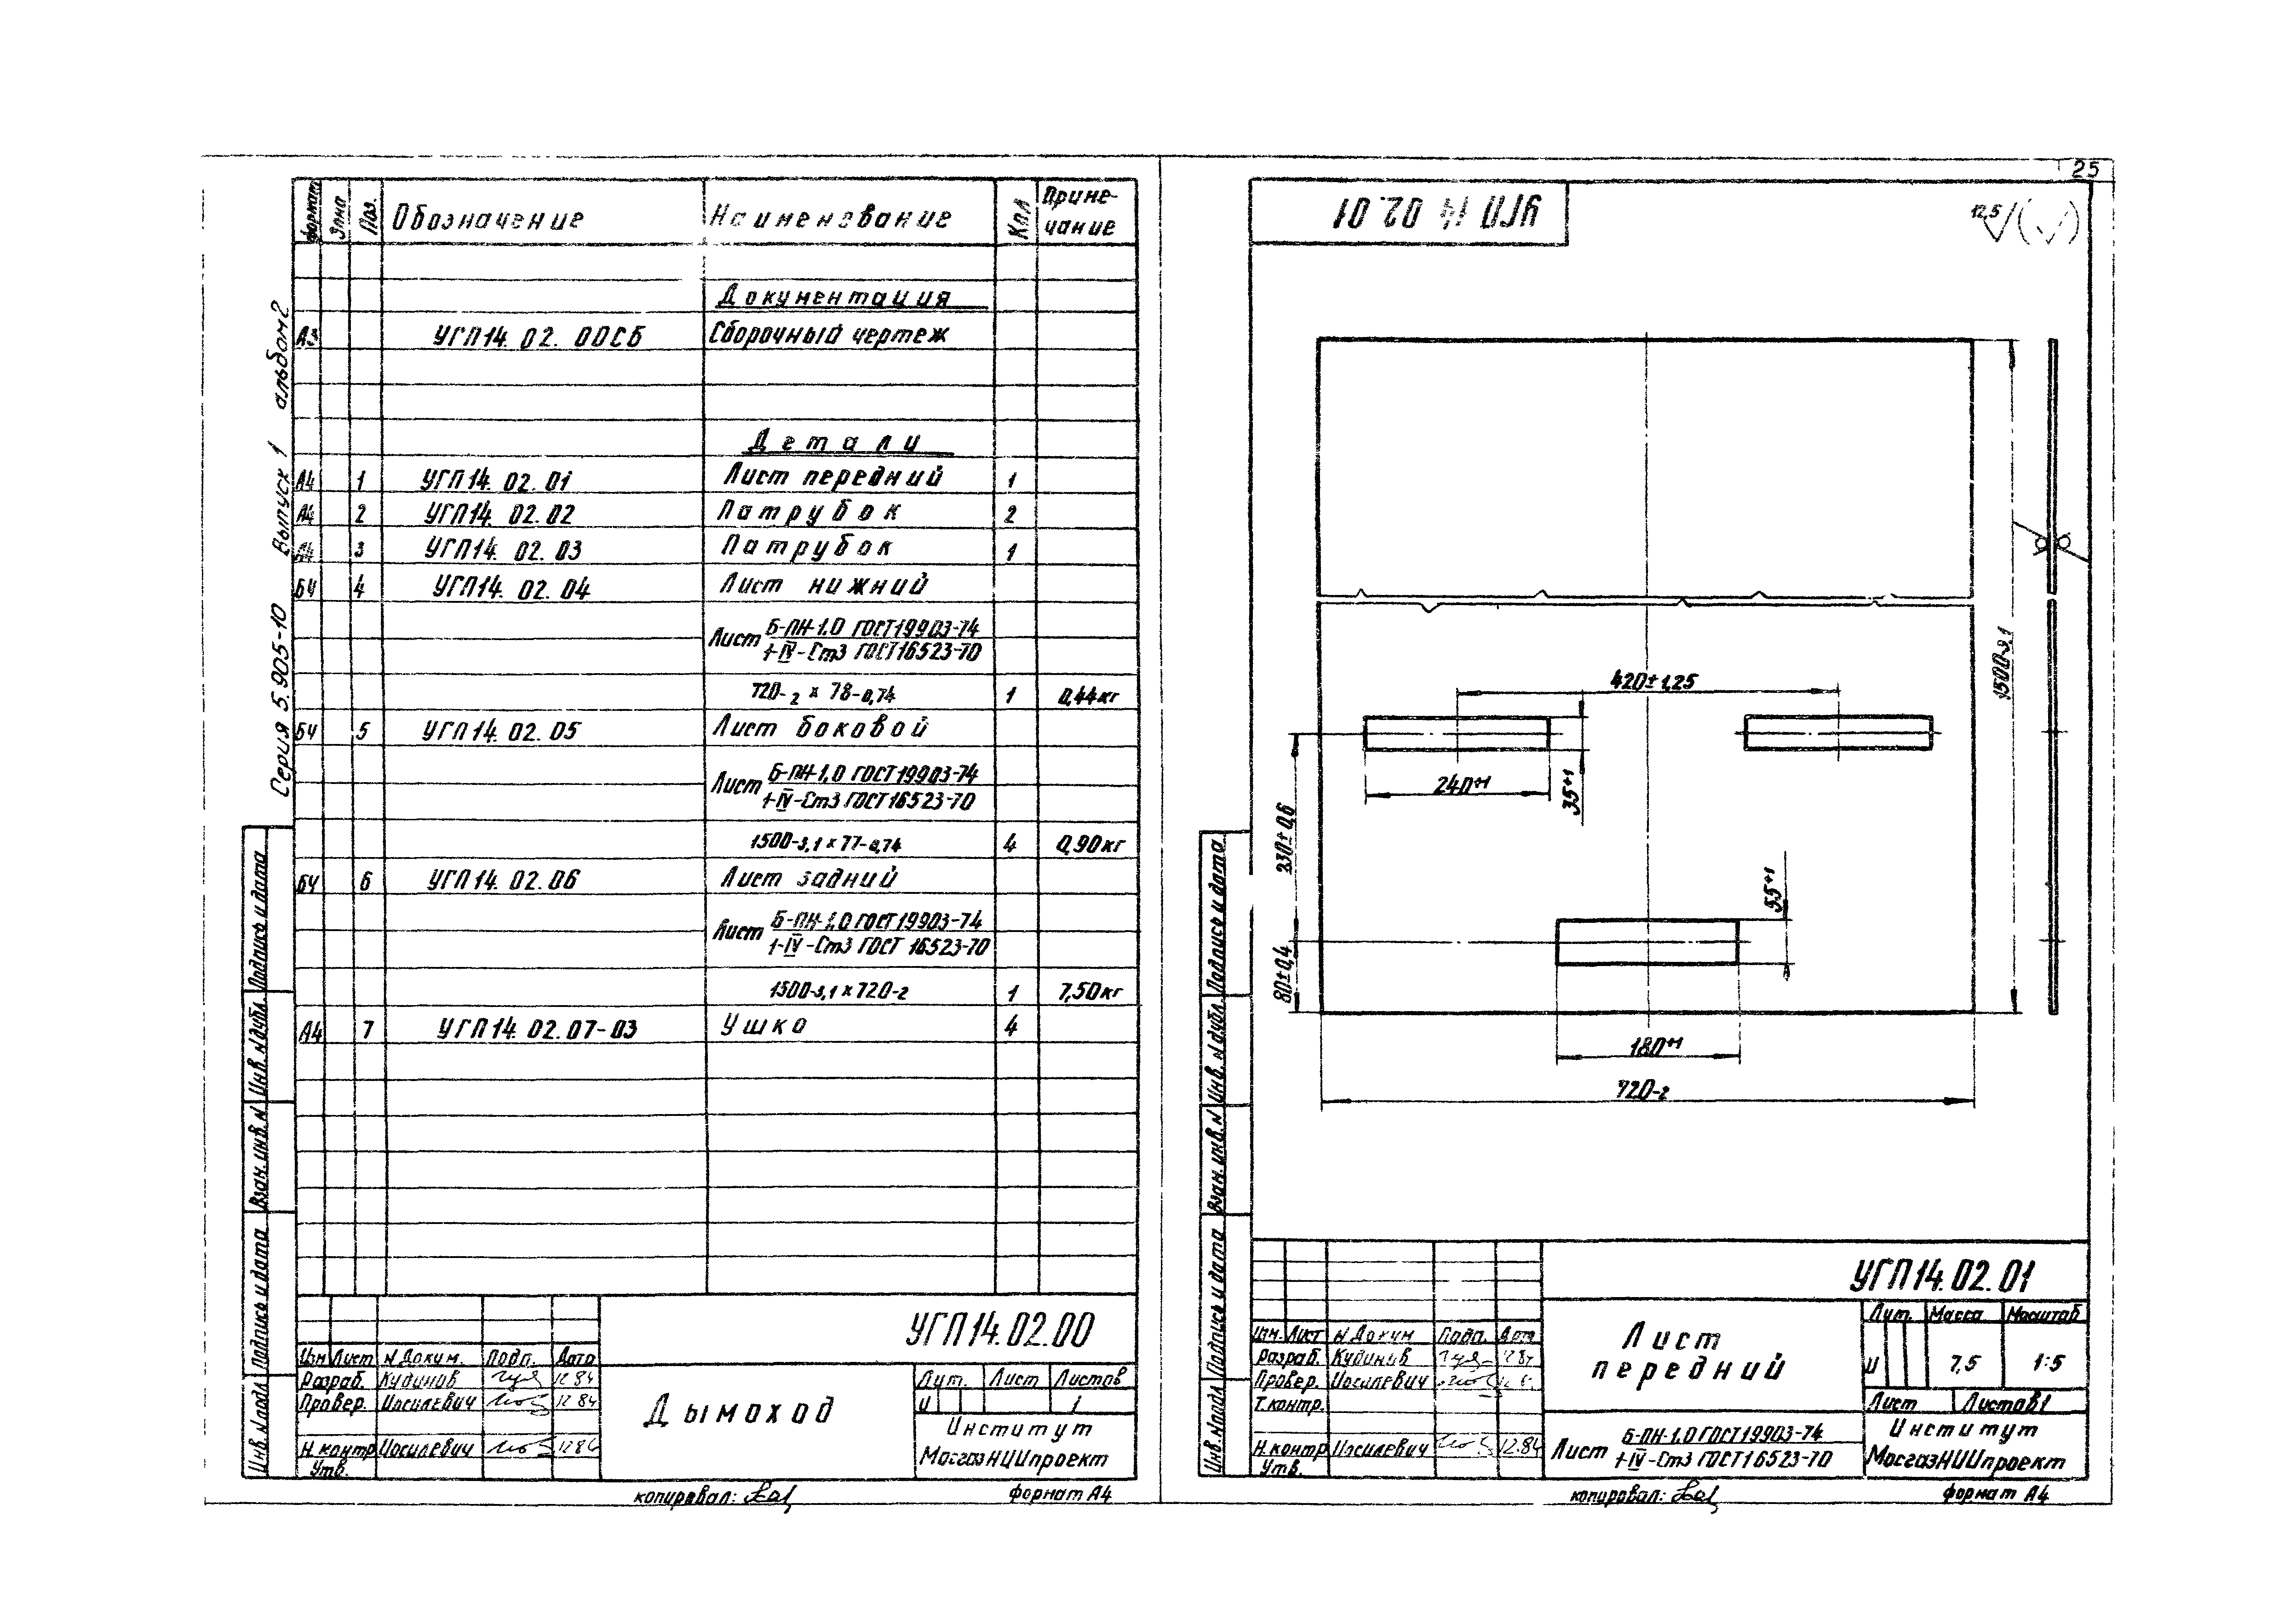 25
Серия 5.905-10 Выпуск 1 альбом 2
Формат Зона Поз. Обозначение Наименование Кол Приме-
чание
Документация
А3 УГП14.02.00СБ Сборочный чертеж
Детали
А4 1 УГП14.02.01 Лист передний 1
А4 2 УГП14.02.02 Патрубок 2
А4 3 УГП14.02.03 Патрубок 1
БЧ 4 УГП14.02.04 Лист нижний
Лист Б-ПН-1.0 ГОСТ19903-74
1-IV-Ст3 ГОСТ16523-70
720-2 х 78-0,74 1 0,44кг
БЧ 5 УГП14.02.05 Лист боковой
Лист Б-ПН-1,0 ГОСТ19903-74
1-IV-Ст3 ГОСТ16523-70
1500-3,1 х 77-0,74 4 0,90кг
БЧ 6 УГП14.02.06 Лист задний
Лист Б-ПН-1,0 ГОСТ19903-74
1-IV-Ст3 ГОСТ 16523-70
1500-3,1 х 720-2 1 7,50кг
А4 7 УГП14.02.07-03 Ушко 4
Инв. N подл Подпись и дата Взан. инв. N Инв. N дубл. Подпись и дата
УГП14.02.00
Изм Лист N Докум. Подп. Дата
Разраб. Кудинов 12 84
Провер. Иосилевич 12 84
Н.контр Иосилевич 12 84
Утв.
Дымоход
Лит. Лист Листов
И 1
Институт
МосгазНИИпроект
копировал:
формат А4
УГП 14 02.01
12,5
420±1,25
240+1
35+1
230±0,6
80±0,4
55+1
180+1
720-2
1500-3,1
Инв. N подл Подпись и дата Взан. инв. N Инв. N дубл. Подпись и дата
УГП14.02.01
Изм. Лист N Докум Подп. Дата
Разраб. Кудинов 12 84
Провер. Иосилевич
Т.контр.
Н.контр Иосилевич 12.84
Утв.
Лист
передний
Лит. Масса Масштаб
И 7,5 1:5
Лист Листов 1
Лист Б-ПН-1.0 ГОСТ19903-74
1-IV-Ст3 ГОСТ16523-70
Институт
МосгазНИИпроект
копировал:
формат А4